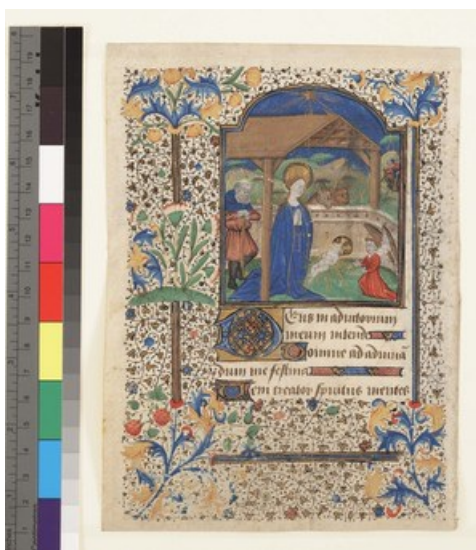 Deus in adiutorium
meum intende
Domine ad adiuva
dum me festina
Veni creator spiritus mentes